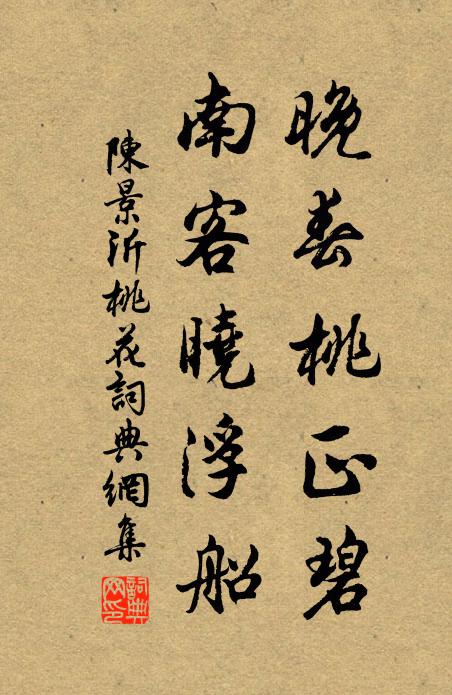 晚春桃正碧
南客曉浮船
陳景沂桃花詞典網集
詞典网印